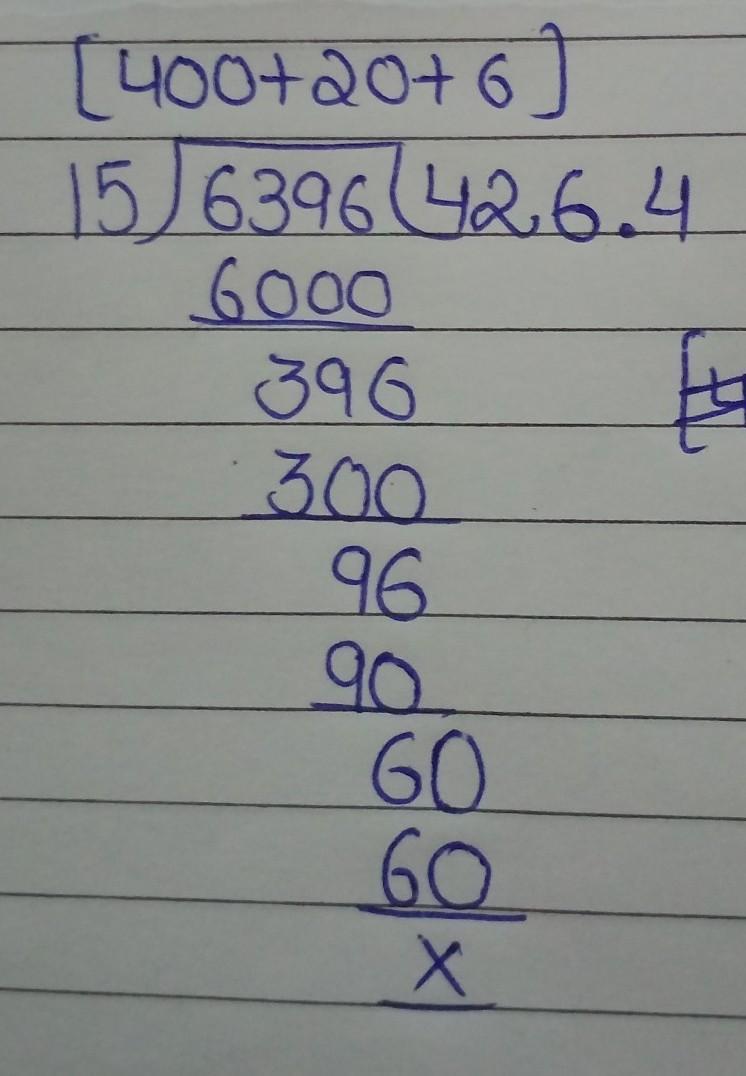 [400+20+6]
15)6396(426.4
6000
396
300
96
90
60
60
x